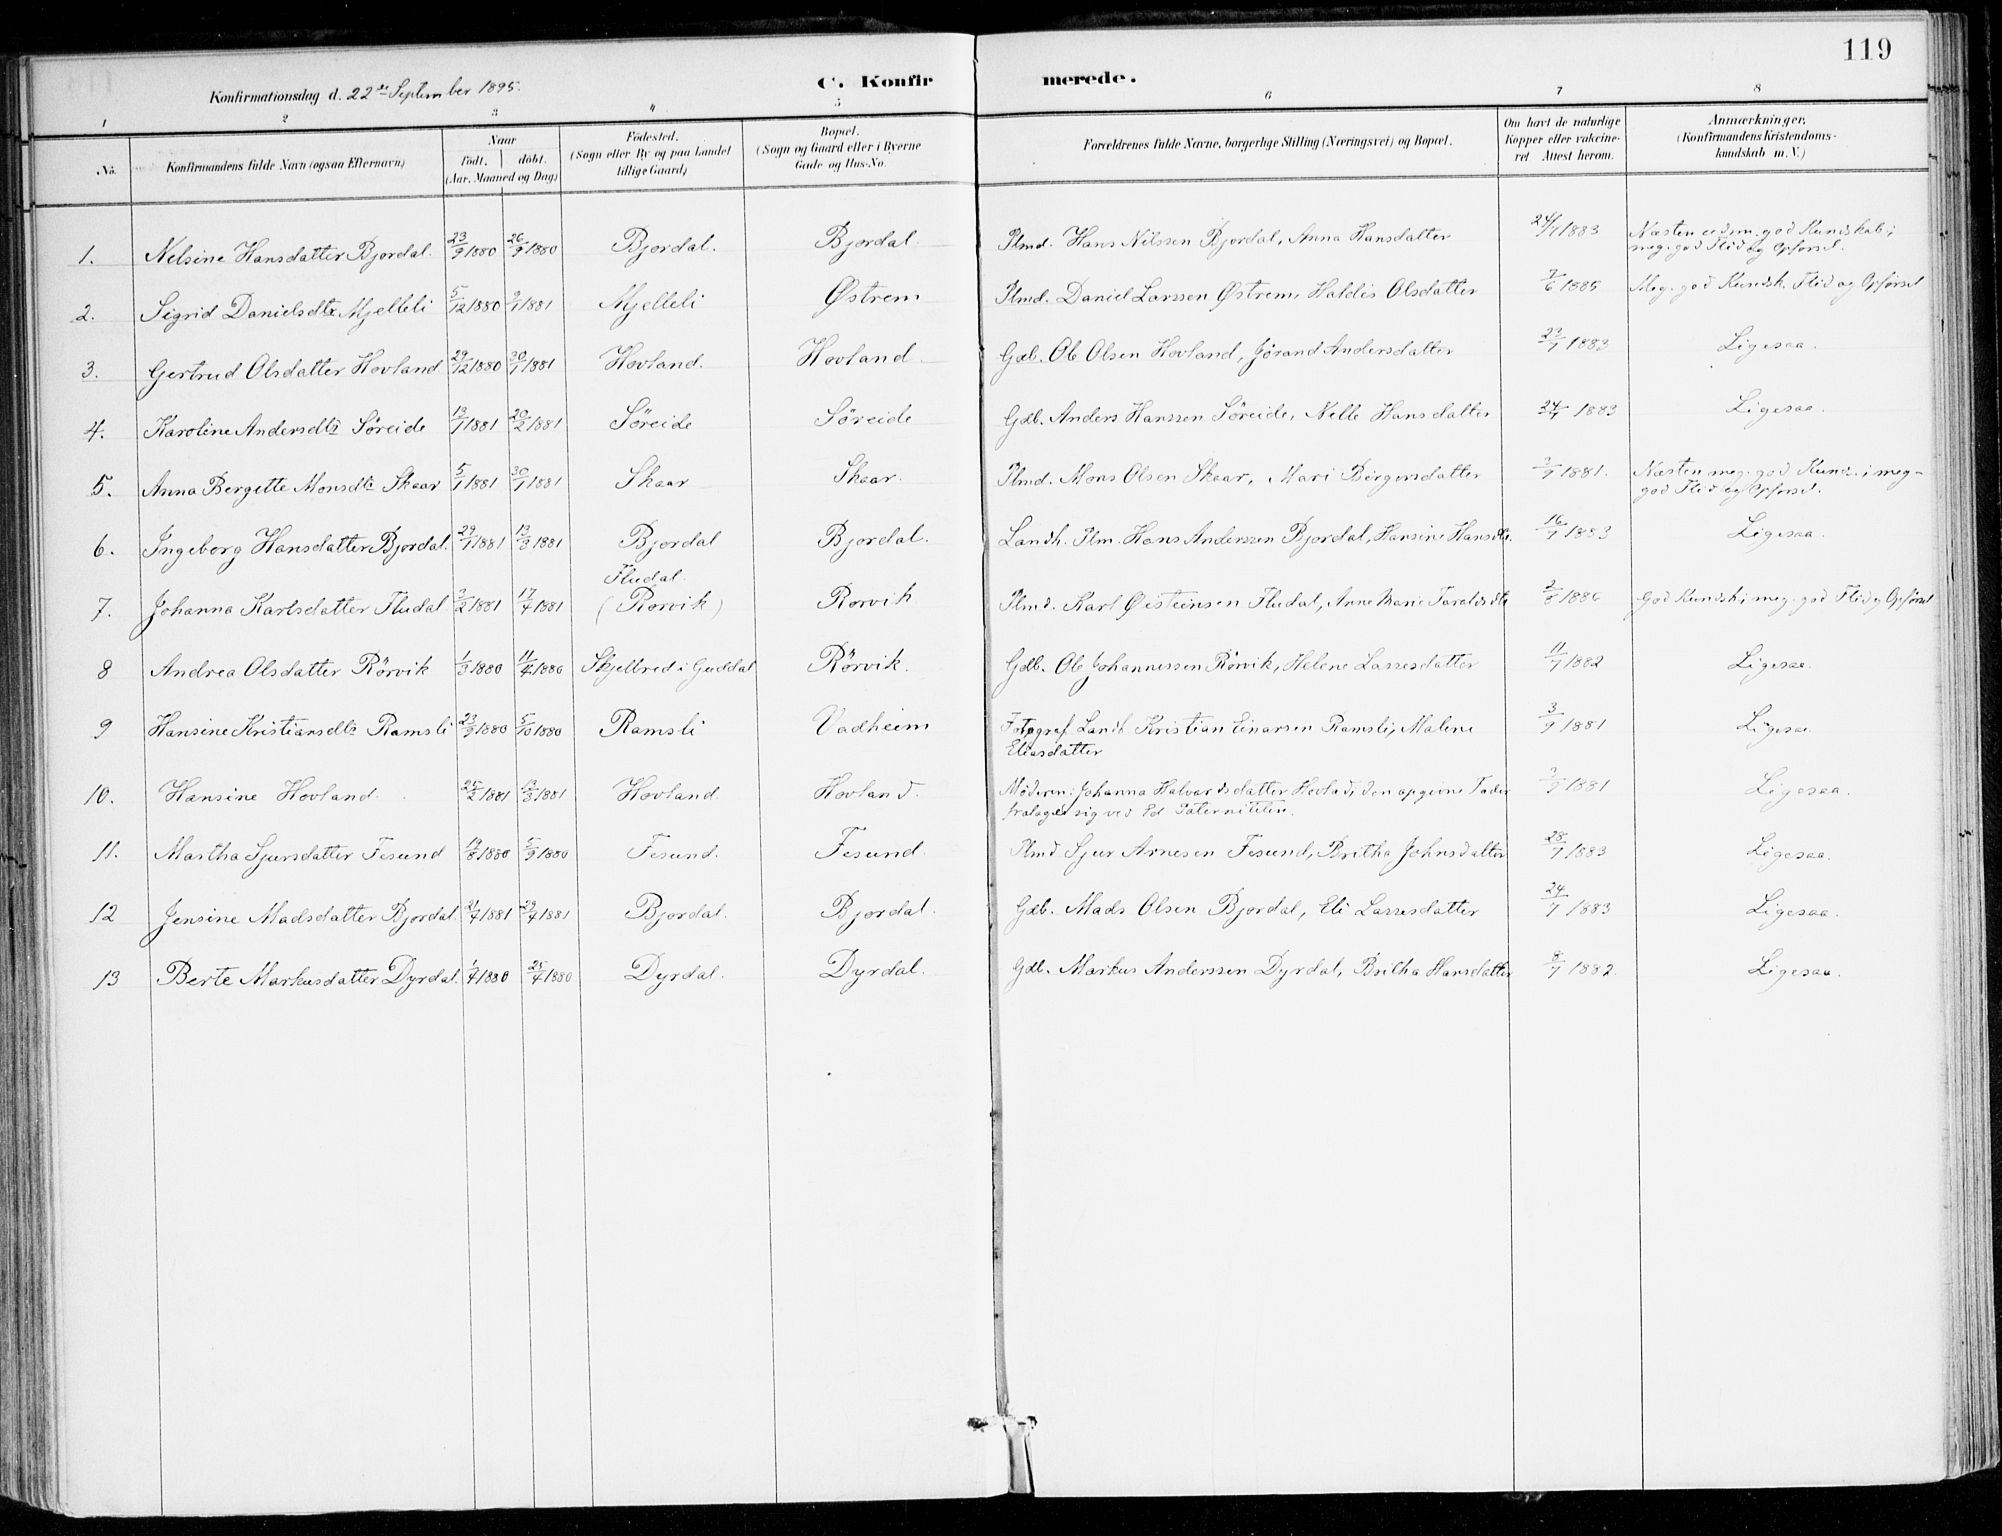 119
Konfirmationsdag d. 22de September 1895.
C. Konfirmerede.
1 2 3 4 5 6 7 8
No.
Konfirmandens fulde Navn (ogsaa Efternavn)
Naar
födt. döbt.
(Aar, Maaned og Dag)
Födested.
(Sogn eller By og paa Landet
tillige Gaard)
Bopæl.
(Sogn og Gaard eller i Byerne
Gade og Hus-No.
Forældrenes fulde Navne, borgerlige Stilling (Næringsvei) og Bopæl.
Om havt de naturlige
Kopper eller vakcine-
ret Attest herom.
Anmærkninger.
(Konfirmandens Kristendoms-
kundskab m. V.)
1. Nelsine Hansdatter Bjordal. 23/9 1880 26/9 1880 Bjordal. Bjordal. Plmd. Hans Nilssen Bjordal, Anna Hansdatter 24/7 1883 Næsten udm. god Kundskab;
meg. god Flid og Opførsel.
2. Sigrid Danielsdtr Mjelleli 5/12 1880 /1 1881 Mjelleli Østrem Plmd. Daniel Larssen Østrem, Haldis Olsdatter 7/6 1885 Meg. god Kundsk. Flid og Opførsel
3. Gertrud Olsdatter Hovland 29/12 1880 30/1 1881 Hovland. Hovland Gdb. Ole Olsen Hovland, Jørand Andersdatter 23/7 1883 Ligesaa.
4. Karoline Andersdtr Søreide 13/1 1881 20/2 1881 Søreide Søreide Gdb. Anders Hanssen Søreide, Nelle Hansdatter 24/7 1883 Ligesaa.
5. Anna Bergitte Monsdtr Skaar 5/1 1881 30/1 1881 Skaar Skaar. Plmd. Mons Olsen Skaar, Mari Børgersdatter /9 1881. Næsten meg. god Kunds.; meg.
god Flid og Opførsel.
6. Ingeborg Hansdatter Bjordal. 29/1 1881 13/3 1881 Bjordal Bjordal. Landh. Plm. Hans Anderssen Bjordal, Hansine Hansdtr. 16/7 1883 Ligesaa.
Fludal.
7. Johanna Karlsdatter Fludal /2 1881 17/4 1881 (Rørvik) Rørvik Plmd. Karl Øisteinsen Fludal, Anne Marie Taraldsdtr 2/8 1886 God Kundsk; meg. god Flid og Opførsel
8 Andrea Olsdatter Rörvik 1/3 1880 11/4 1880 Skjelbred i Guddal Rörvik. Gdb. Ole Johannessen Rörvik, Helene Lassesdatter 11/7 1882 Ligesaa.
9 Hansine Kristiansdtr Ramsli 23/9 1880 5/10 1880 Ramsli Vadheim Fotograf Landh Kristian Einarsen Ramsli, Malene
Eliasdatter 3/9 1881 Ligesaa
10. Hansine Hovland. 25/2 1881 13/3 1881 Hovland. Hovland. Moderen: Johanna Halvardsdatter Hovland; den opgivne Fader
fralagde sig ved Ed Paterniteten. /9 1881 Ligesaa.
11. Martha Sjursdatter Fesund 19/8 1880 5/9 1880 Fesund. Fesund. Plmd Sjur Arnesen Fesund, Britha Johnsdatter 28/7 1883 Ligesaa.
12 Jensine Madsdatter Bjordal. 21/4 1881 29/4 1881 Bjordal. Bjordal. Gdb. Mads Olsen Bjordal, Eli Lassesdatter 24/7 1883 Ligesaa.
13 Berte Markusdatter Dyrdal. 1/4 1880 25/4 1880 Dyrdal. Dyrdal. Gdb. Markus Anderssen Dyrdal, Britha Hansdatter 8/7 1882. Ligesaa.